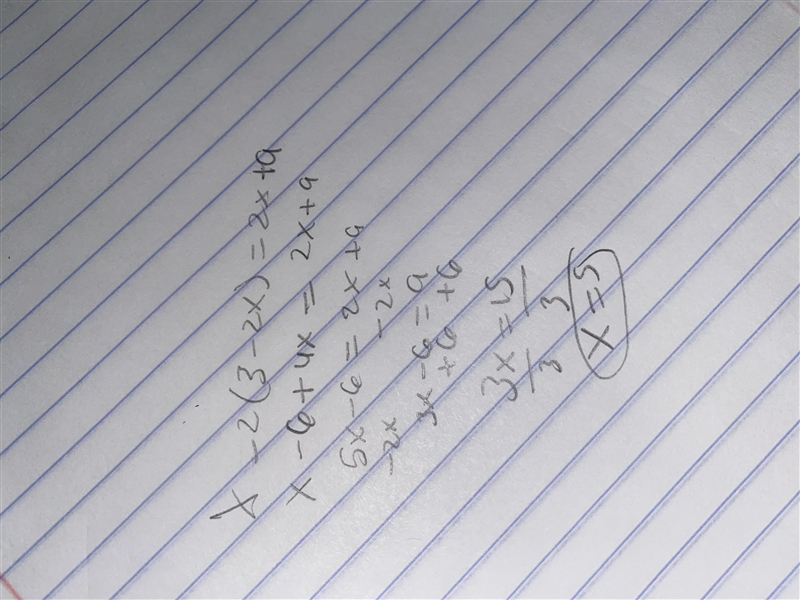 x - 2(3 - 2x) = 2x + 9
x - 6 + 4x = 2x + 9
5x - 6 = 2x + 9
-2x -2x
3x - 6 = 9
+6 +6
3x = 15
3 3
x = 5